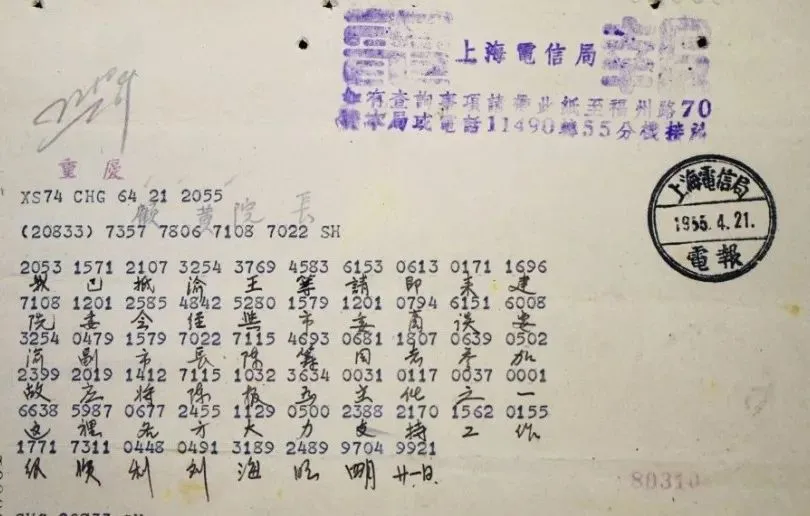 上海電信局
如有查詢事項請帶此紙至福州路70
號本局或電話11490轉55分機接洽
重慶
XS74 CHG 64 21 2055
顧黃院長
(20833) 7357 7806 7108 7022 SH
上海電信局
1955.4.21.
電報
2053 1571 2107 3254 3769 4583 6153 0613 0171 1696
我已抵渝王等請即来建
7108 1201 2585 4842 5280 1579 1201 0794 6151 6008
院委会经與市委商談要
3254 0479 1579 7022 7115 4693 0681 1807 0639 0502
渝副市長陳籌同志参加
2399 2019 1412 7115 1032 3634 0031 0117 0037 0001
故应将陳报為主任之一
6638 5987 0677 2455 1129 0500 2388 2170 1562 0155
这裡各方大力支持工作
1771 7311 0448 0491 3189 2489 9704 9921
很順利 到 海旺 四月 廿一日
80310